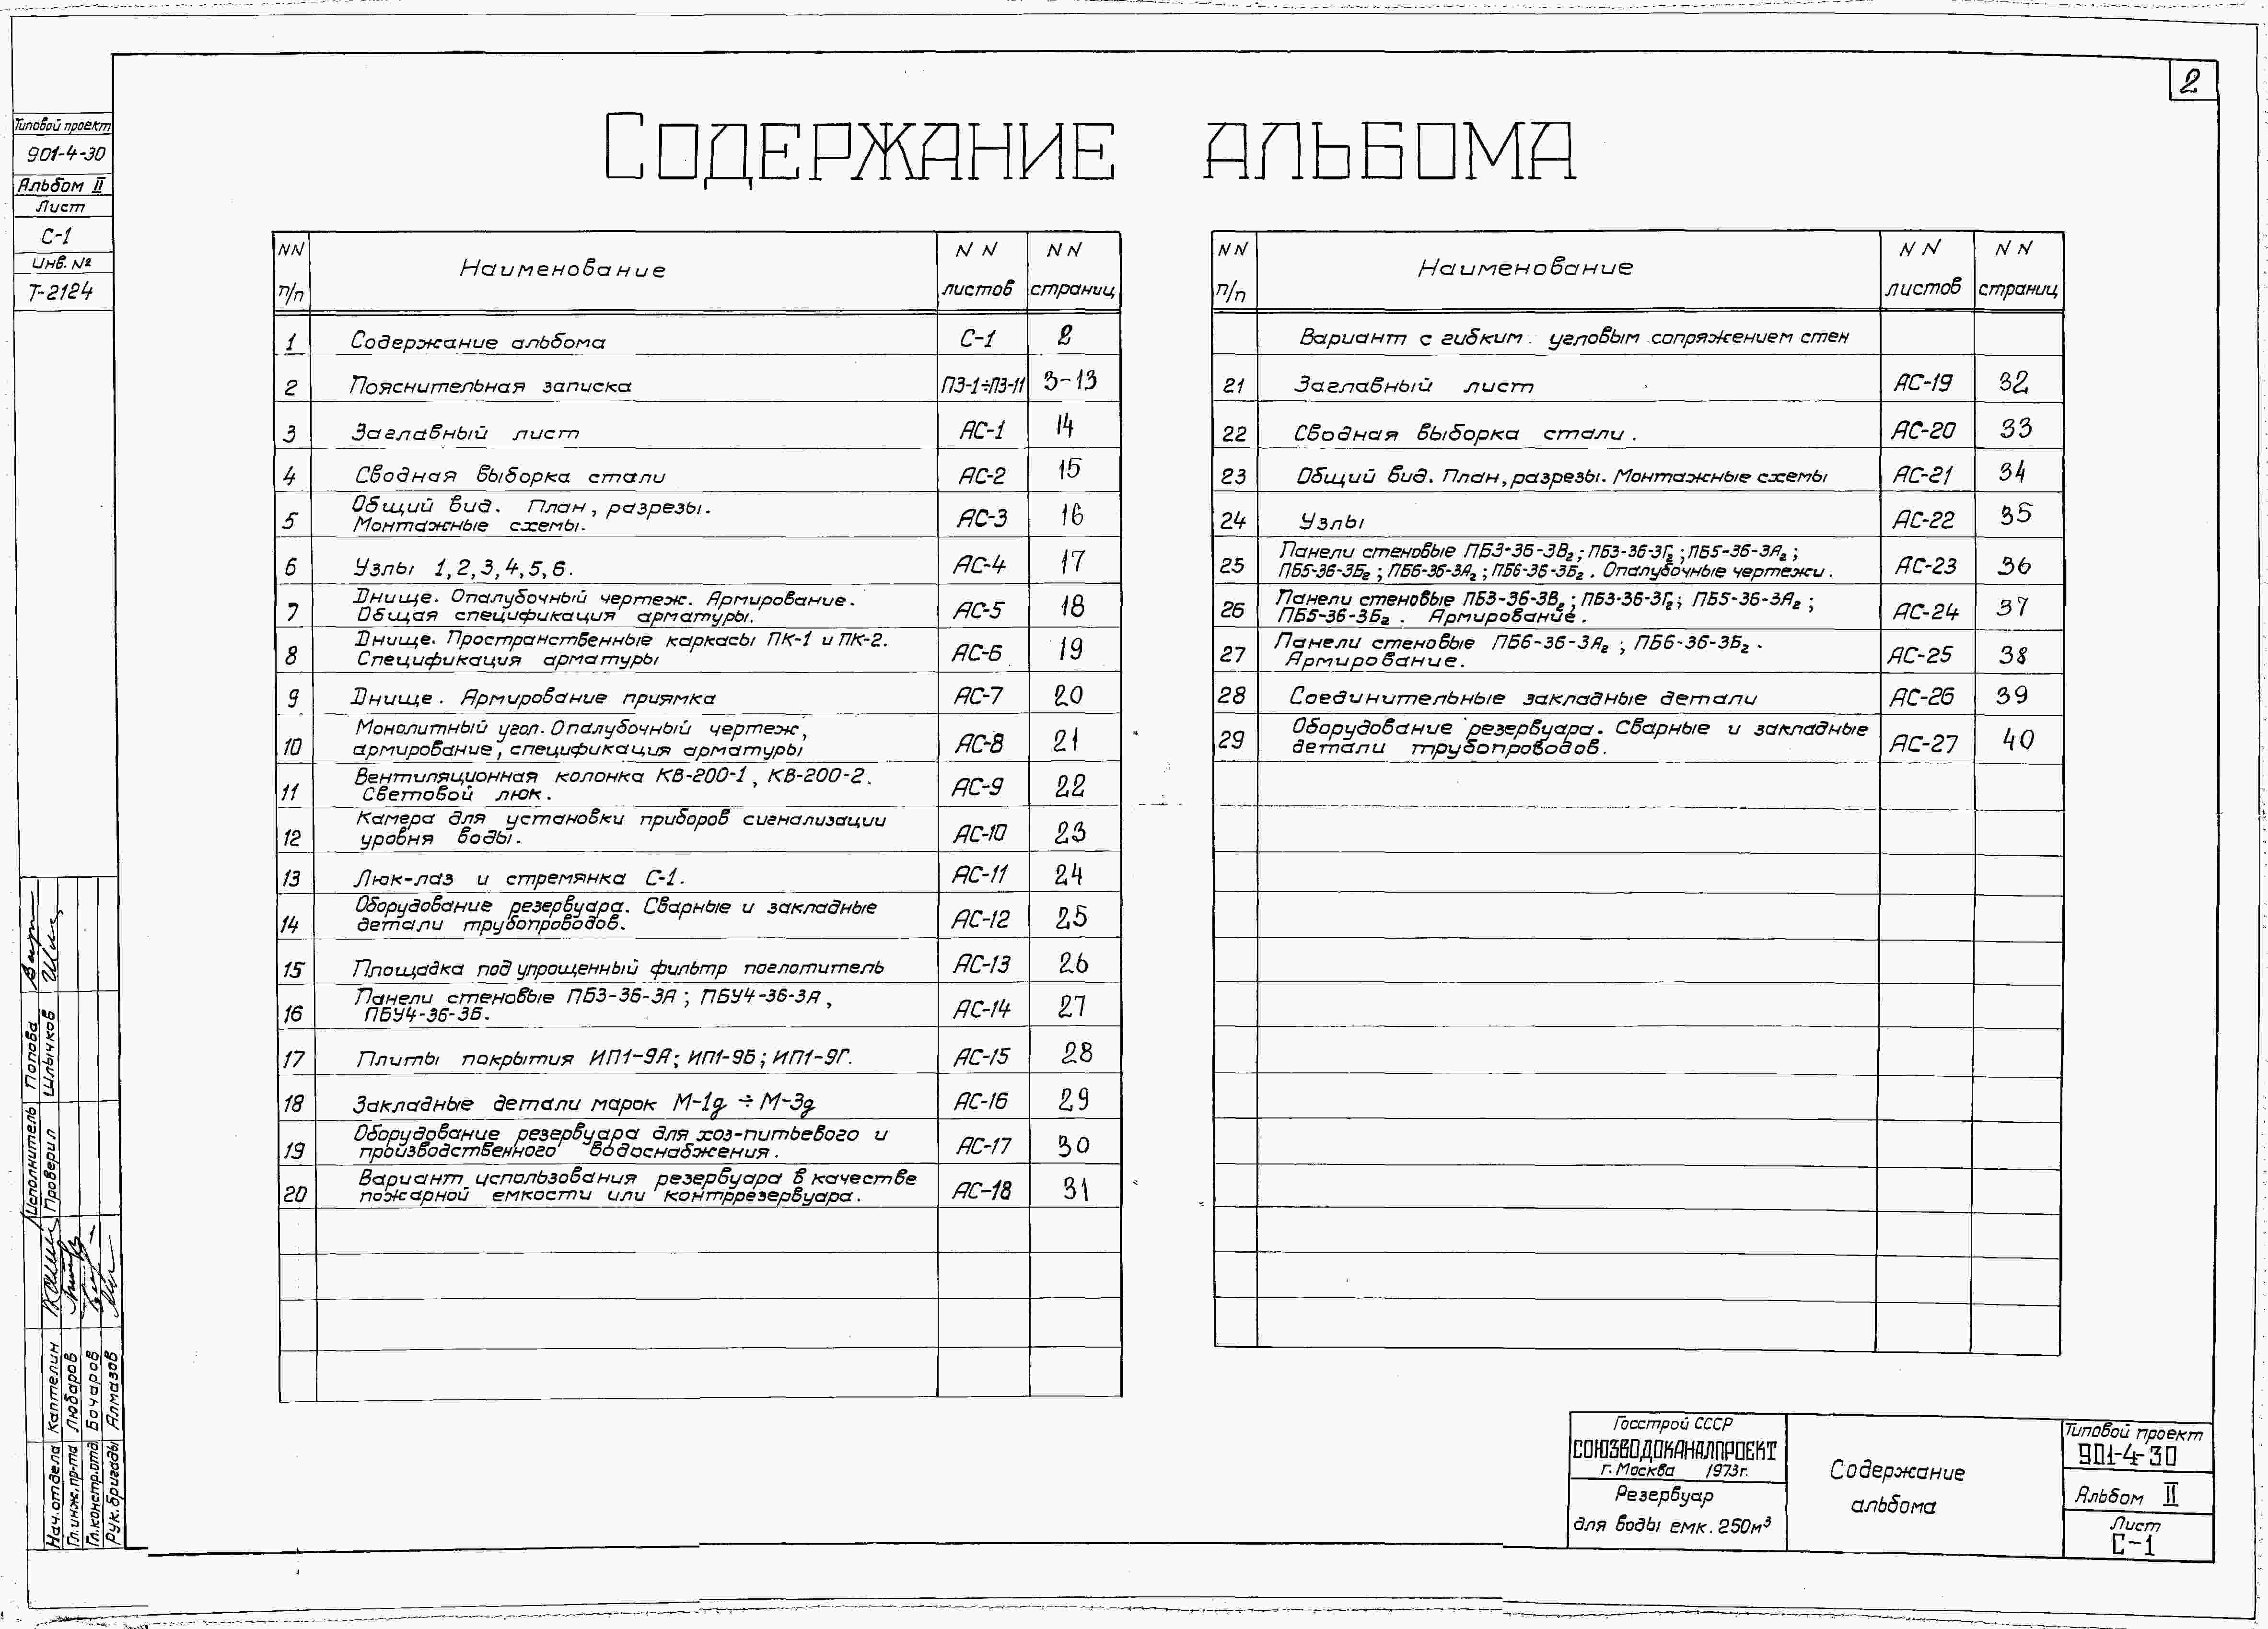 2
Типовой проект
901-4-30
Альбом II
Лист
С-1
Инв. №
Т-2124
Содержание альбома
NN п/п Наименование NN листов NN страниц
1 Содержание альбома С-1 2
2 Пояснительная записка ПЗ-1÷ПЗ-11 3-13
3 Заглавный лист АС-1 14
4 Сводная выборка стали АС-2 15
5 Общий вид. План, разрезы.
Монтажные схемы. АС-3 16
6 Узлы 1,2,3,4,5,6. АС-4 17
7 Днище. Опалубочный чертеж. Армирование.
Общая спецификация арматуры. АС-5 18
8 Днище. Пространственные каркасы ПК-1 и ПК-2.
Спецификация арматуры АС-6 19
9 Днище. Армирование приямка АС-7 20
10 Монолитный угол. Опалубочный чертеж,
армирование, спецификация арматуры АС-8 21
11 Вентиляционная колонка КВ-200-1, КВ-200-2.
Световой люк. АС-9 22
12 Камера для установки приборов сигнализации
уровня воды. АС-10 23
13 Люк-лаз и стремянка С-1. АС-11 24
14 Оборудование резервуара. Сварные и закладные
детали трубопроводов. АС-12 25
15 Площадка под упрощенный фильтр поглотитель АС-13 26
16 Панели стеновые ПБ3-36-3А; ПБУ4-36-3А,
ПБУ4-36-3Б. АС-14 27
17 Плиты покрытия ИП1-9А; ИП1-9Б; ИП1-9Г. АС-15 28
18 Закладные детали марок М-1д ÷ М-3д АС-16 29
19 Оборудование резервуара для хоз-питьевого и
производственного водоснабжения. АС-17 30
20 Вариант использования резервуара в качестве
пожарной емкости или контррезервуара. АС-18 31
NN п/п Наименование NN листов NN страниц
Вариант с гибким угловым сопряжением стен
21 Заглавный лист АС-19 32
22 Сводная выборка стали. АС-20 33
23 Общий вид. План, разрезы. Монтажные схемы АС-21 34
24 Узлы АС-22 35
25 Панели стеновые ПБ3-36-3В₂; ПБ3-36-3Г₂; ПБ5-36-3А₂;
ПБ5-36-3Б₂; ПБ6-36-3А₂; ПБ6-36-3Б₂. Опалубочные чертежи. АС-23 36
26 Панели стеновые ПБ3-36-3В₂; ПБ3-36-3Г₂; ПБ5-36-3А₂;
ПБ5-36-3Б₂. Армирование. АС-24 37
27 Панели стеновые ПБ6-36-3А₂; ПБ6-36-3Б₂.
Армирование. АС-25 38
28 Соединительные закладные детали АС-26 39
29 Оборудование резервуара. Сварные и закладные
детали трубопроводов. АС-27 40
Исполнитель Попова
Проверил Шлычков
Нач. отдела Каптелин
Гл. инж. пр-та Любаров
Гл. констр. отд Бочаров
Рук. бригады Алмазов
Госстрой СССР
СОЮЗВОДОКАНАЛПРОЕКТ
г. Москва 1973г.
Резервуар
для воды емк. 250м³
Содержание
альбома
Типовой проект
901-4-30
Альбом II
Лист
С-1